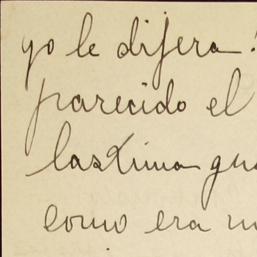 yo le dijera!
parecido el
lastima que
como era